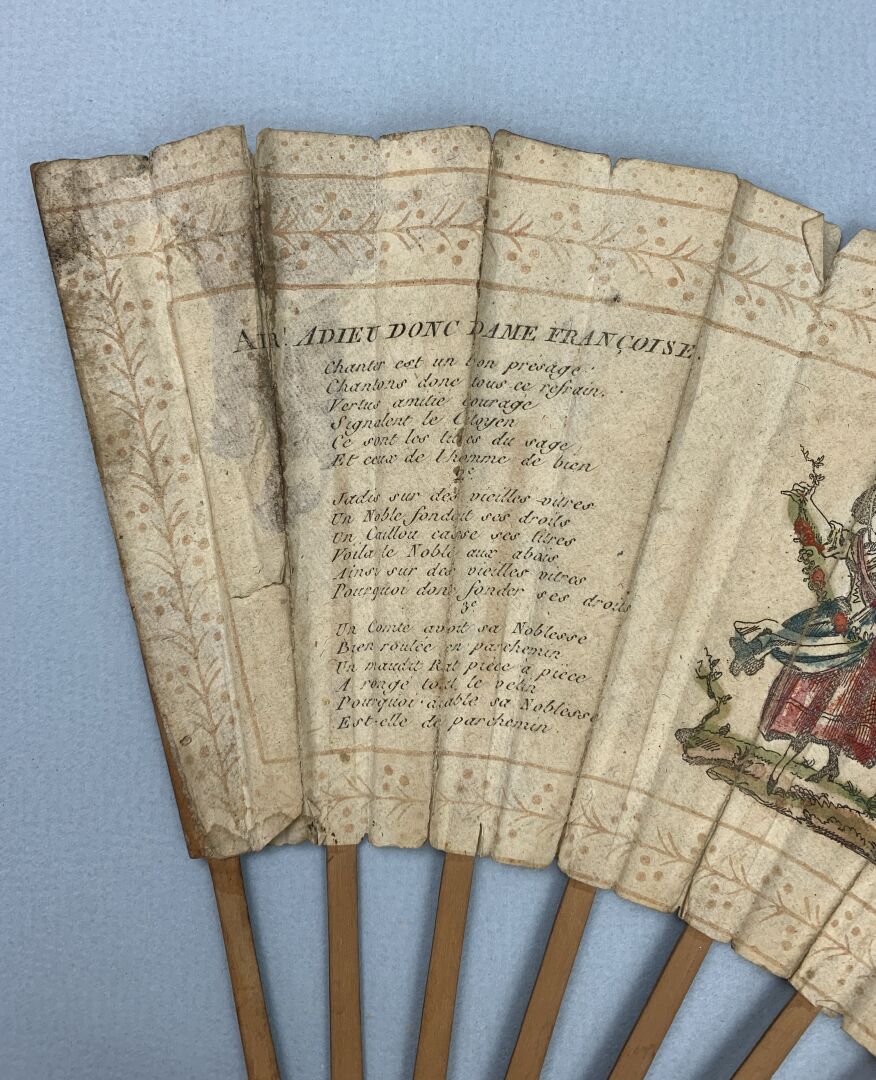 AIR: ADIEU DONC DAME FRANÇOISE.
Chanter est un bon présage
Chantons donc tous ce refrain.
Vertus amitie courage
Signalent le Citoyen
Ce sont les titres du sage
Et ceux de l'homme de bien
2e
Jadis sur des vieilles vitres
Un Noble fondoit ses droits
Un Caillou casse ses titres
Voila le Noble aux abois
Ainsi sur des vieilles vitres
Pourquoi donc fonder ses droits
3e
Un Comte avoit sa Noblesse
Bien roulée en parchemin
Un maudit Rat pièce a pièce
A rongé tout le velin
Pourquoi diable sa Noblesse
Est-elle de parchemin.